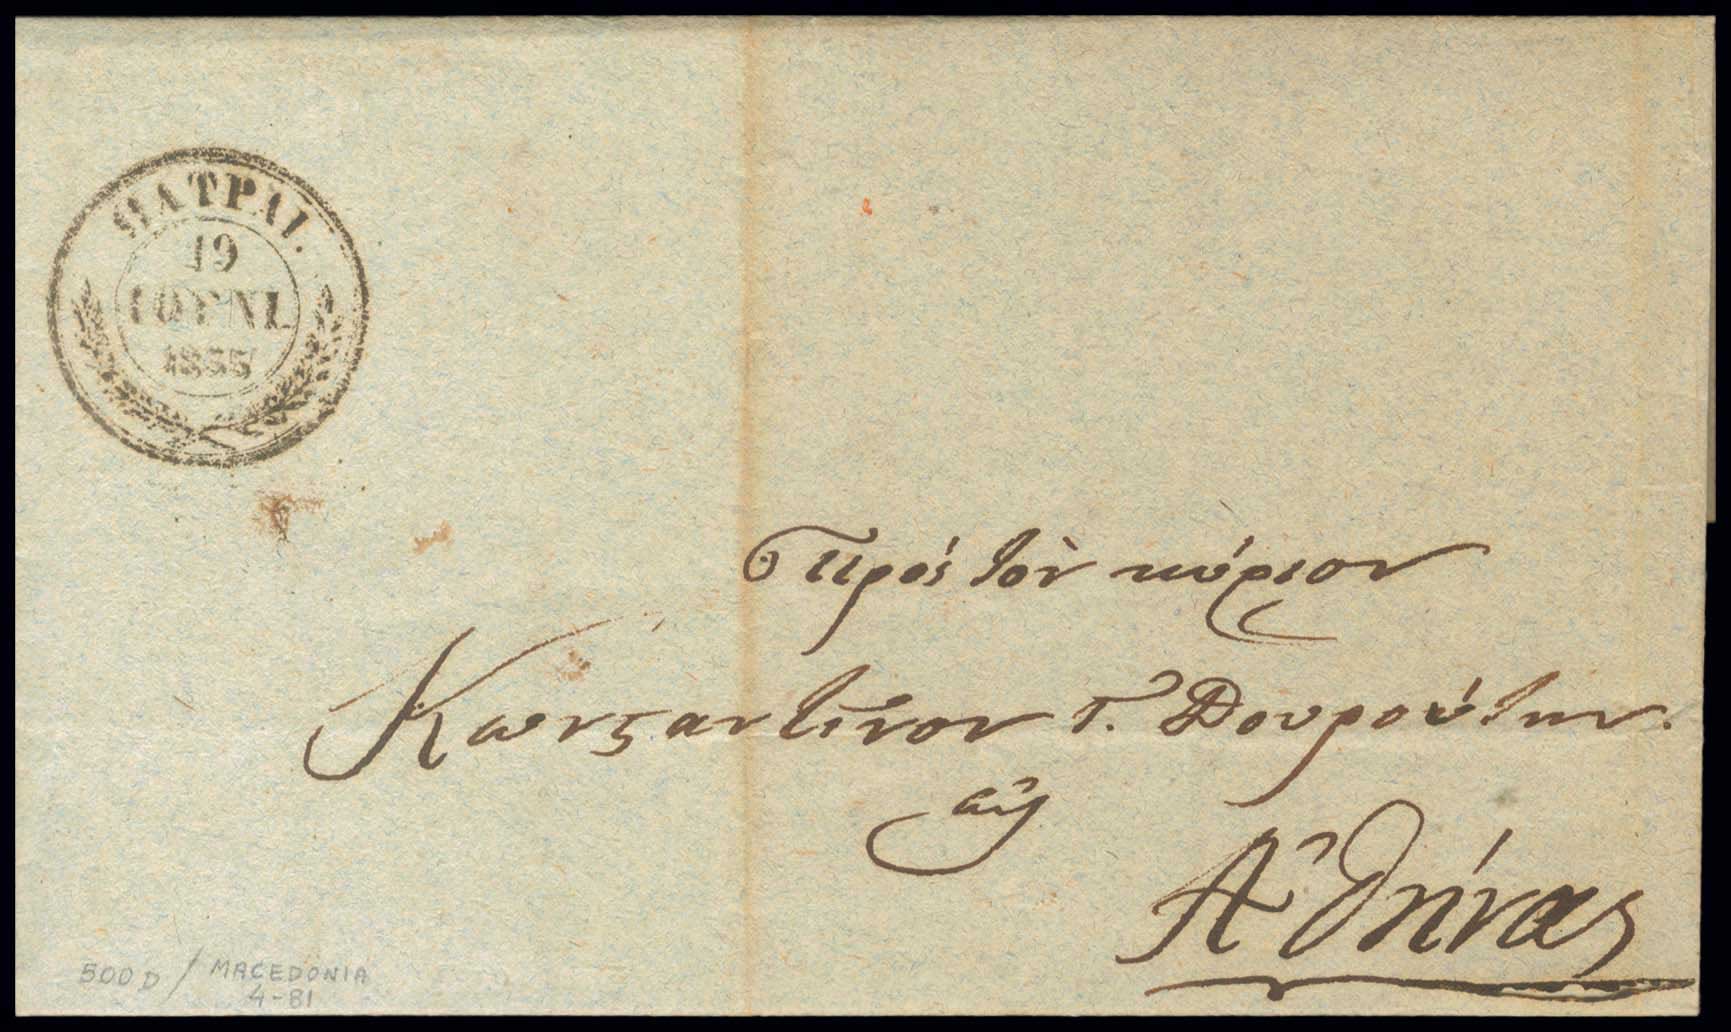 ΠΑΤΡΑΙ.
19
ΙΟΥΝΙ.
1855
Πρὸς τὸν κύριον
Κωνςαντῖνον Γ. Δουρούτην.
εἰς
Ἀθήνας
500 D / MACEDONIA
4-81